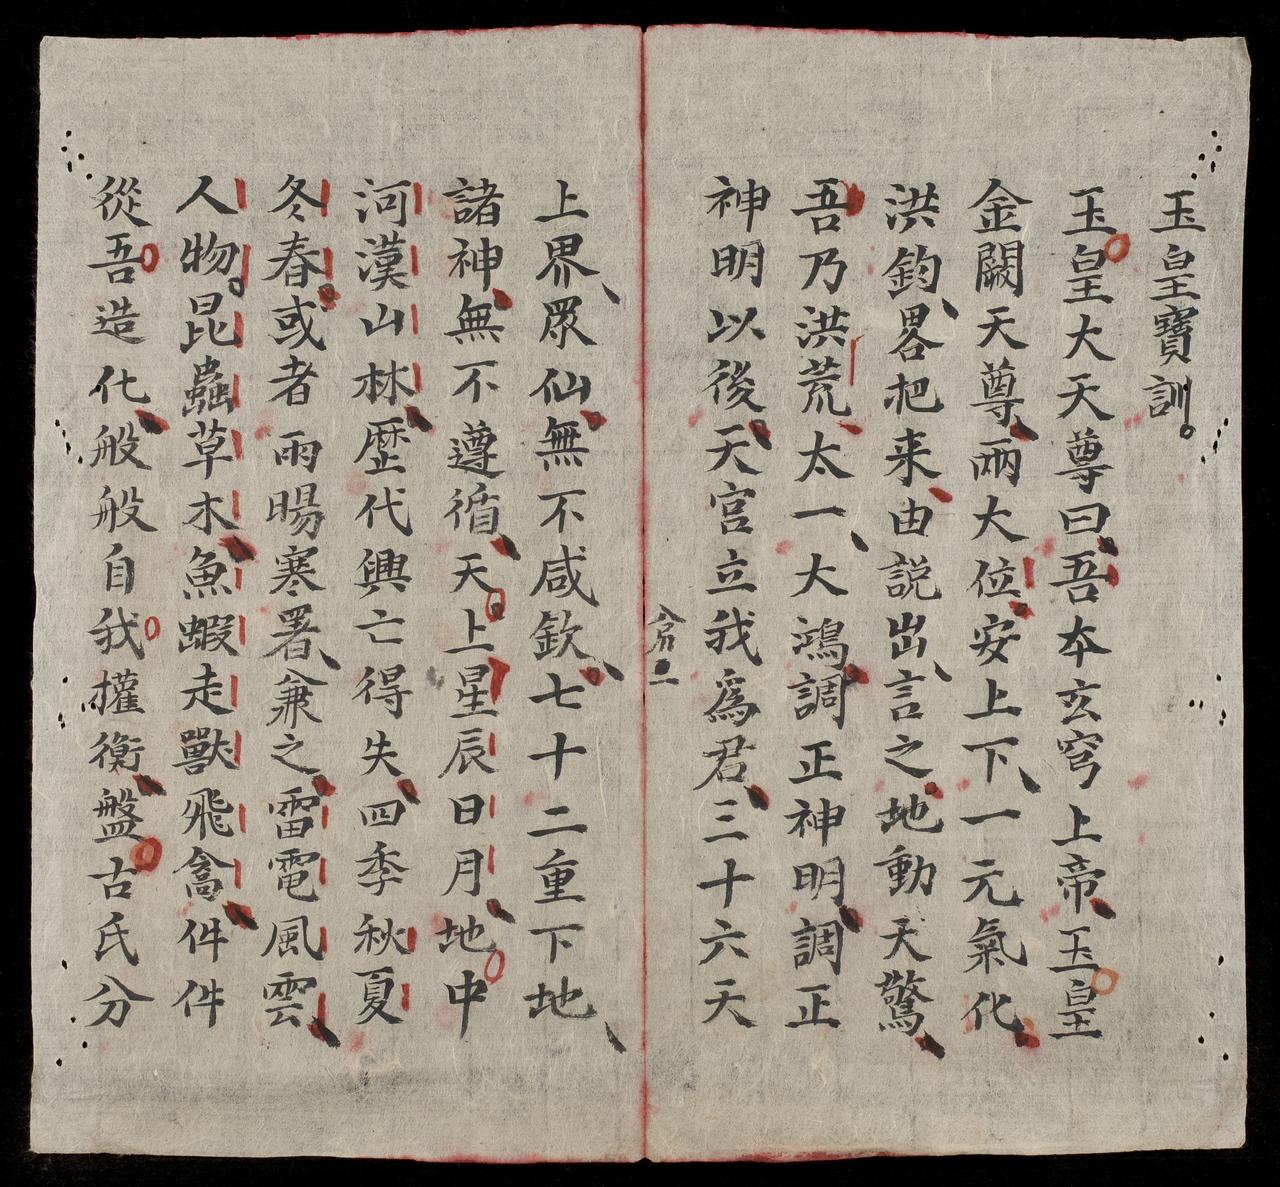 玉皇寶訓。
玉皇大天尊曰、吾本玄穹上帝、玉皇
金闕天尊、兩大位、安上下、一元氣化、
洪鈞、畧把来、由說出、言之、地動天驚、
吾乃洪荒、太一、大鴻、調正神明、調正
神明以後、天宮立我爲君、三十六天
上界、眾仙、無不咸欽、七十二重下地、
諸神、無不遵循、天上星辰日月、地中
河漢山林、歷代興亡得失、四季秋夏
冬春。或者雨暘寒署、兼之、雷電風雲、
人物。昆蟲草木、魚蝦走獸飛禽、件件
從吾造化、般般自我權衡、盤古氏分